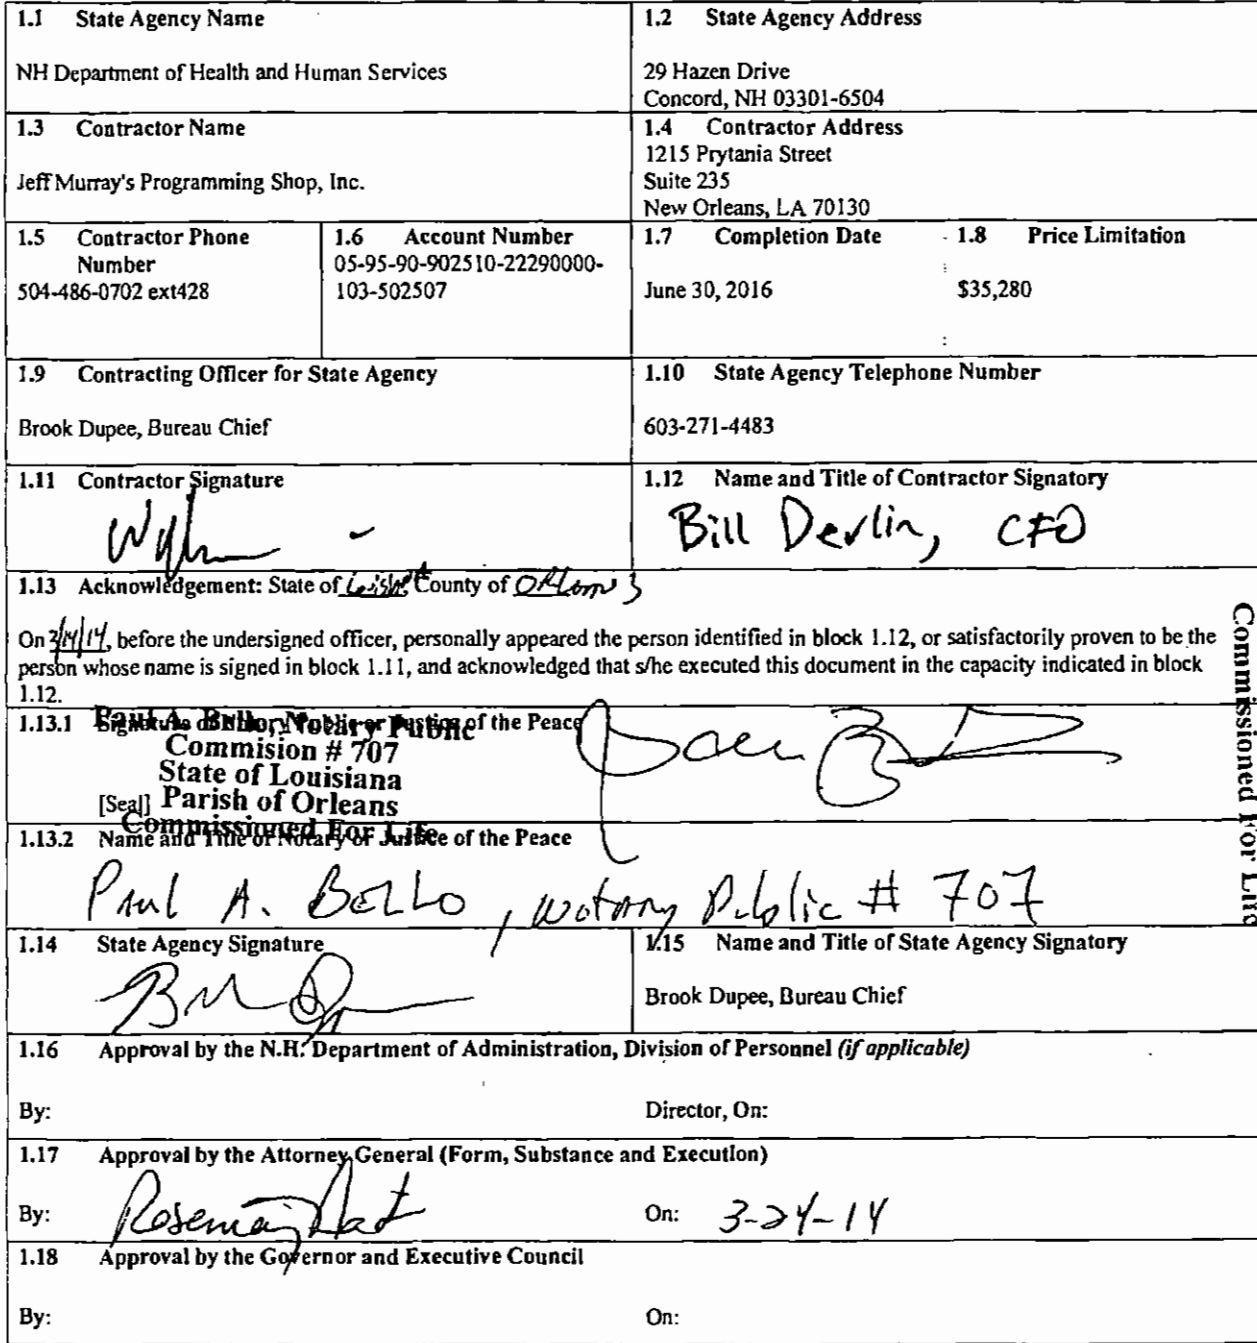 1.1 State Agency Name
NH Department of Health and Human Services
1.2 State Agency Address
29 Hazen Drive
Concord, NH 03301-6504
1.3 Contractor Name
Jeff Murray's Programming Shop, Inc.
1.4 Contractor Address
1215 Prytania Street
Suite 235
New Orleans, LA 70130
1.5 Contractor Phone
Number
504-486-0702 ext428
1.6 Account Number
05-95-90-902510-22290000-
103-502507
1.7 Completion Date
June 30, 2016
1.8 Price Limitation
$35,280
1.9 Contracting Officer for State Agency
Brook Dupee, Bureau Chief
1.10 State Agency Telephone Number
603-271-4483
1.11 Contractor Signature
1.12 Name and Title of Contractor Signatory
Bill Devlin, CFO
1.13 Acknowledgement: State of County of
On , before the undersigned officer, personally appeared the person identified in block 1.12, or satisfactorily proven to be the
person whose name is signed in block 1.11, and acknowledged that s/he executed this document in the capacity indicated in block
1.12.
1.13.1 Signature of Notary Public or Justice of the Peace
Paul A. Bello, Notary Public
Commision # 707
State of Louisiana
[Seal] Parish of Orleans
Commissioned For Life
Commissioned For Life
1.13.2 Name and Title of Notary or Justice of the Peace
Paul A. Bello, Notary Public # 707
1.14 State Agency Signature
1.15 Name and Title of State Agency Signatory
Brook Dupee, Bureau Chief
1.16 Approval by the N.H. Department of Administration, Division of Personnel (if applicable)
By: Director, On:
1.17 Approval by the Attorney General (Form, Substance and Execution)
By: On: 3-24-14
1.18 Approval by the Governor and Executive Council
By: On: